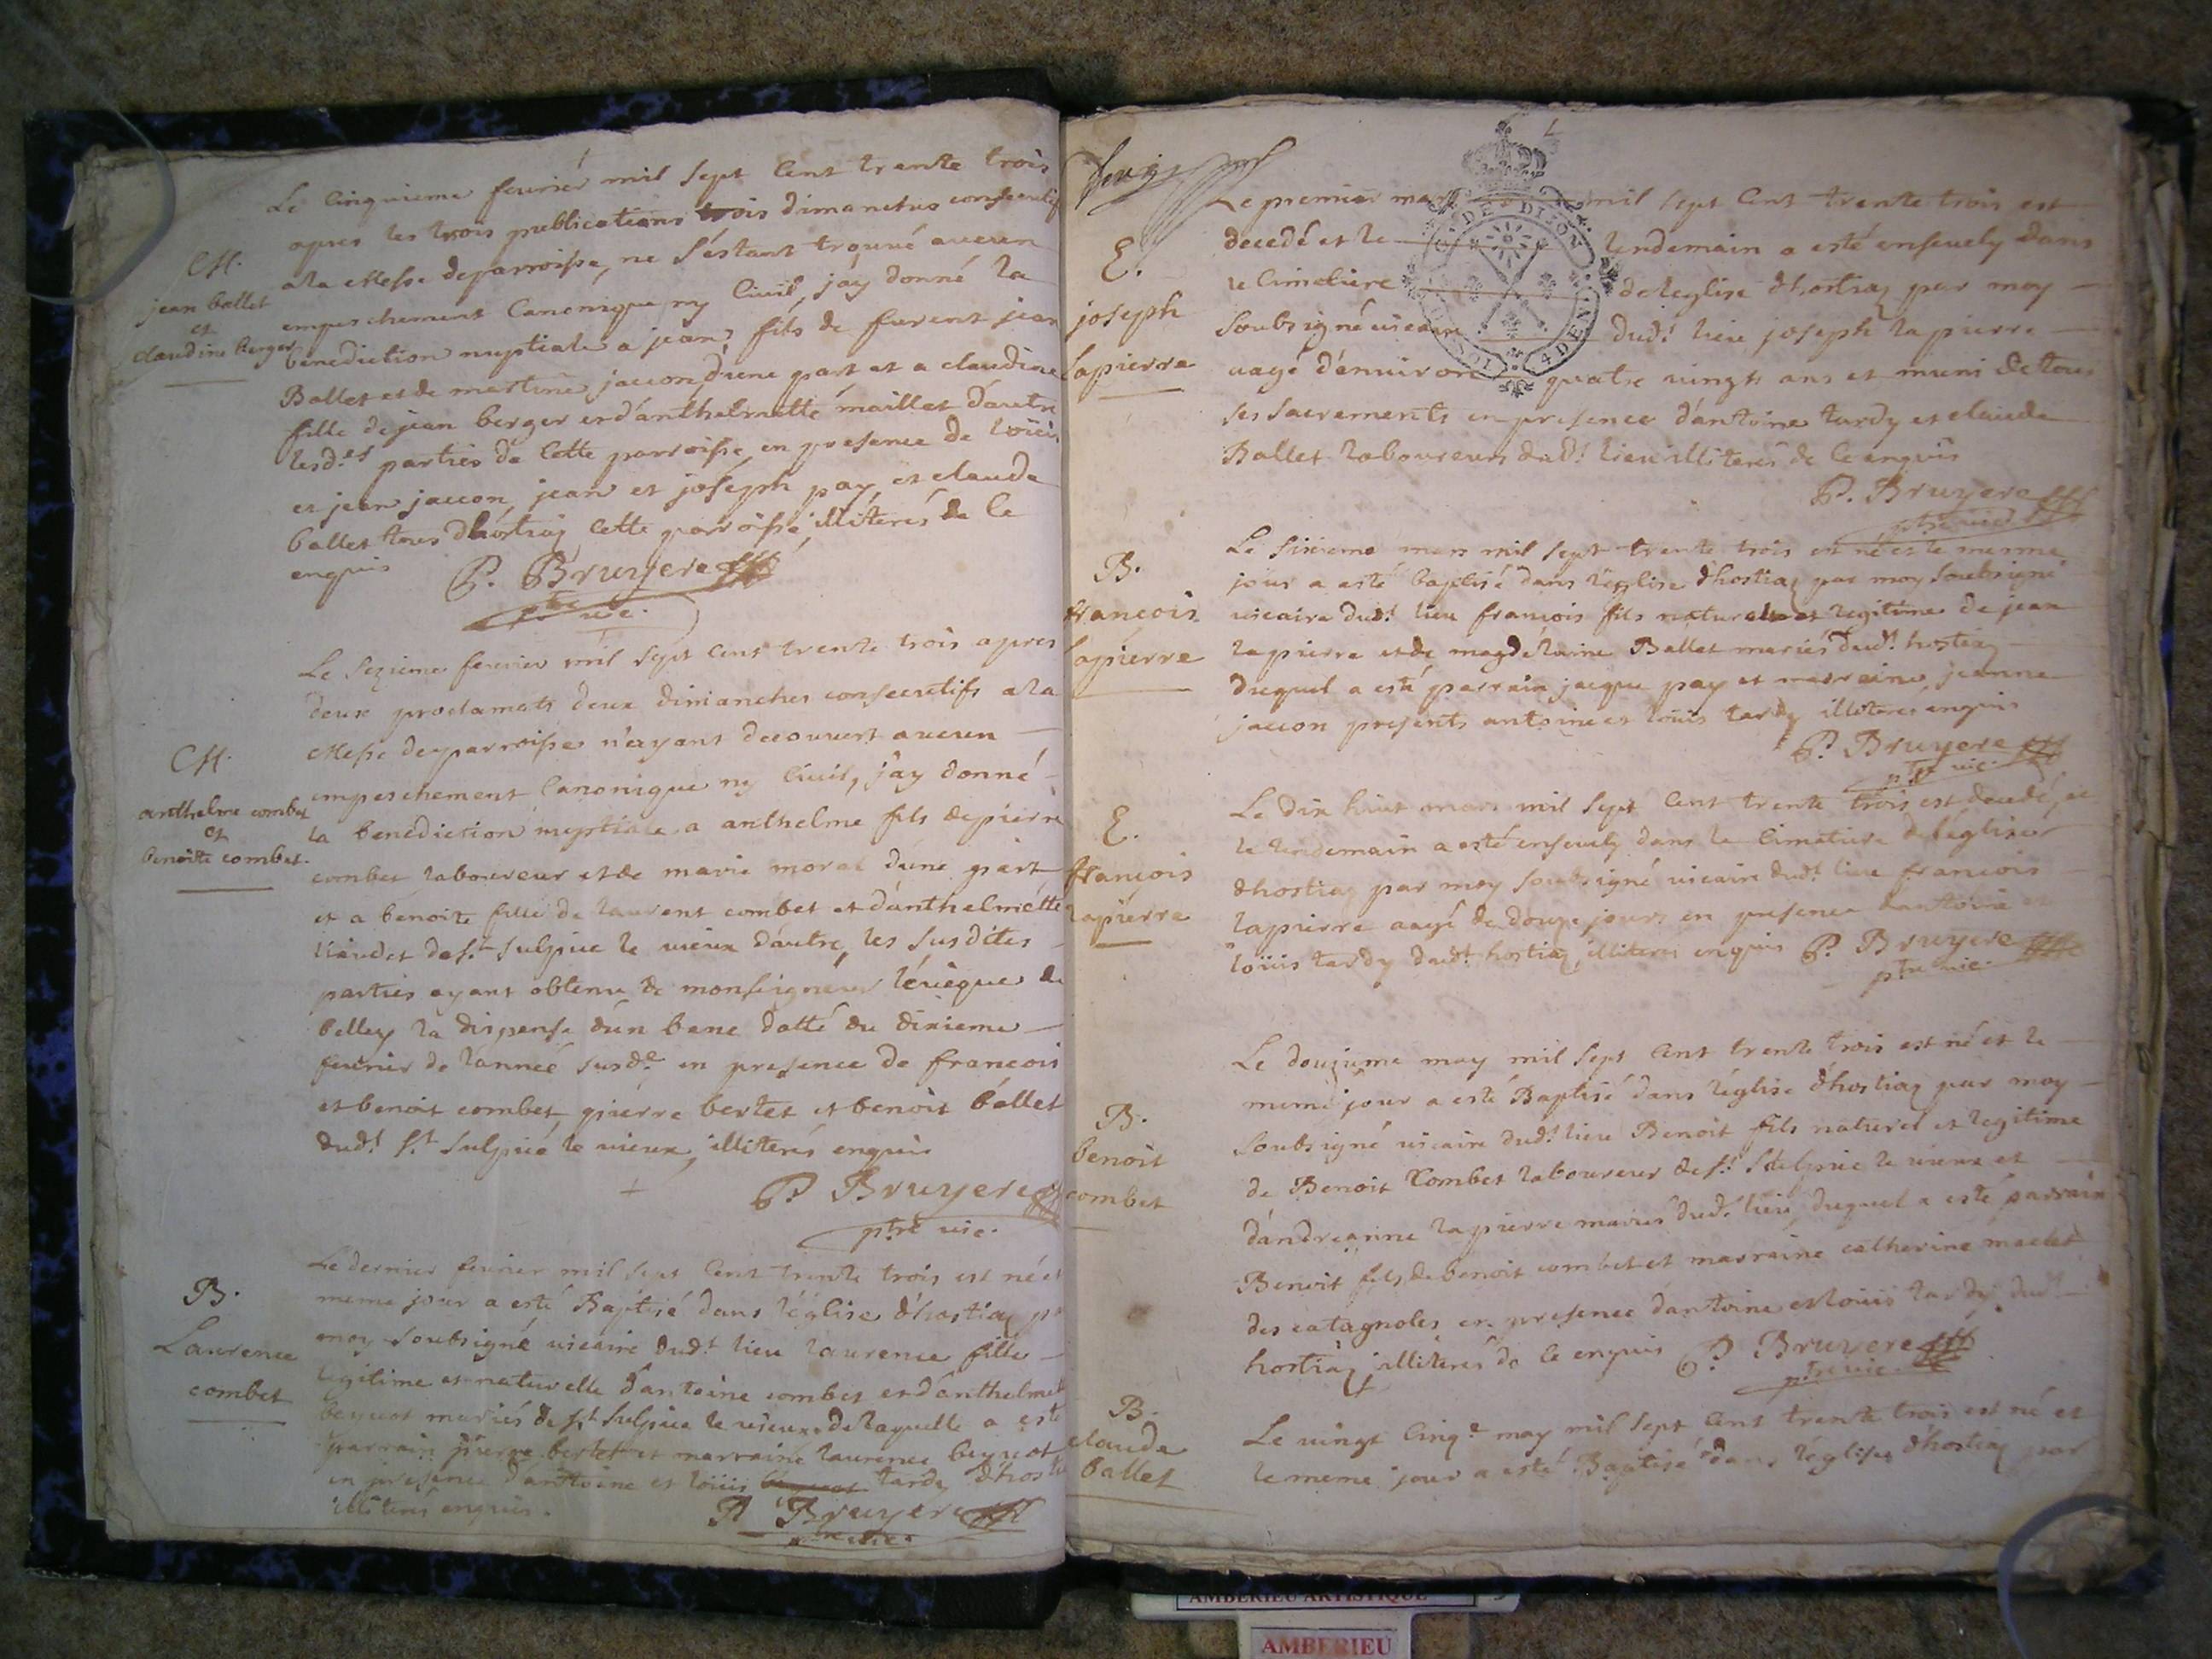 M.
jean ballet
et
claudine Berger
Le Cinquieme feurier mil sept Cent trente trois
apres les trois publications trois dimanches consecutifs
a la Messe de parroisse, ne s'estant trouué aucun
empeschement Canonique ny Ciuil, j'ay donné la
benediction nuptiale a jean fils de furent jean
Ballet et de martine jaccon d'une part et a claudine
fille de jean berger et d'anthelmette maillet d'autre
lesd.es parties de Cette parroisse, en presence de loüis
et jean jaccon, jean et joseph pay, et claude
ballet tous d'hostiaz Cette parroisse, illiterés de Ce
enquis P. Bruyere
ptre vic.
M.
anthelme combet
et
benoite combet.
Le sezieme feurier mil sept Cent trente trois apres
deux proclamats deux dimanches consecutifs a la
Messe de parroisse n'ayant decouuert aucun
empeschement Canonique ny Ciuil, j'ay donné
la benediction nuptiale a anthelme fils de pierre
combet laboureur et de marie moral d'une part
et a benoite fille de laurent combet et d'anthelmette
de st sulpice le vieux d'autre, les susdites
parties ayant obtenu de monseigneur l'éuêque de
belley la dispense d'un banc datté du dixieme
feurier de l'année susd.e en presence de francois
et benoit combet, pierre bertet et benoit ballet
dud.t st sulpice le vieux, illiterés enquis
P. Bruyere
ptre vic.
B.
Laurence
combet
Le dernier feurier mil sept Cent trente trois est né et
meme jour a esté Baptisé dans l'église d'hostiaz par
moy soubsigné vicaire dud.t lieu laurence fille
legitime et naturelle d'antoine combet et d'anthelmette
beynot mariés de st sulpice le vieux, de laquelle a esté
parrain pierre bertet et marraine laurence beynot
en presence d'anthoine et loüis tardy d'hostiaz
illiterés enquis.
P. Bruyere
ptre vic.
E.
joseph
lapierre
Le premier mars mil sept Cent trente trois est
decedé et le lendemain a esté enseuely dans
le Cimetiere de leglise d'hostiaz par moy
soubsigné vicaire dud.t lieu joseph lapierre
aagé d'enuiron quatre vingts ans et muni de tous
ses sacrements en presence d'antoine tardy et claude
Ballet laboureurs dud.t lieu illiterés de Ce enquis
P. Bruyere
ptre vic.
G. DE DIJON
4 DEN
B.
francois
lapierre
Le sixieme mars mil sept trente trois est né et le mesme
jour a esté baptisé dans l'église d'hostiaz par moy soubsigné
vicaire dud.t lieu francois fils naturel et legitime de jean
lapierre et de magdelaine Ballet mariés dud.t hostiaz
duquel a esté parrain jacque pay et marraine jeanne
jaccon presents antoine et loüis tardy illiterés enquis
P. Bruyere
ptre vic.
E.
francois
lapierre
Le dix huit mars mil sept Cent trente trois est decedé, et
le lendemain a esté enseuely dans le Cimetiere de l'église
d'hostiaz par moy soubsigné vicaire dud.t lieu francois
lapierre aagé de douze jours en presence d'antoine et
loüis tardy dud.t hostiaz, illiterés enquis P. Bruyere
ptre vic.
B.
benoit
combet
Le douzieme may mil sept Cent trente trois est né et le
meme jour a esté Baptisé dans l'église d'hostiaz par moy
soubsigné vicaire dud.t lieu Benoit fils naturel et legitime
de Benoit Combet laboureur de st sulpice le vieux et
d'andreanne lapierre mariés dud.t lieu, duquel a esté parrain
Benoit fils de benoit combet et marraine catherine maclet
des catagnoles en presence d'antoine et loüis tardy dud.t
hostiaz illiterés de Ce enquis P. Bruyere
ptre vic.
B.
claude
ballet
Le vingt Cinq.e may mil sept Cent trente trois est né et
le meme jour a esté Baptisé dans l'église d'hostiaz par
AMBERIEU ARTISTIQUE
AMBERIEU